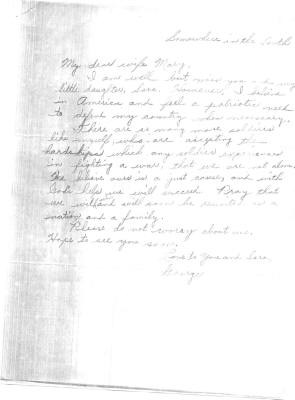 Somewhere in the South
My dear wife Mary,
I am well but miss you and my
little daughter, Sara. However, I believe
in America and feel a patriotic need
to defend my country when necessary.
There are so many more soldiers
like myself who are accepting the
hardships which any soldier experiences
in fighting a war, that we are not alone.
We believe ours is a just cause, and with
God's help we will succeed. Pray that
we will and will soon be reunited as a
nation and a family.
Please do not worry about me.
Hope to see you soon.
Love to you and Sara,
George